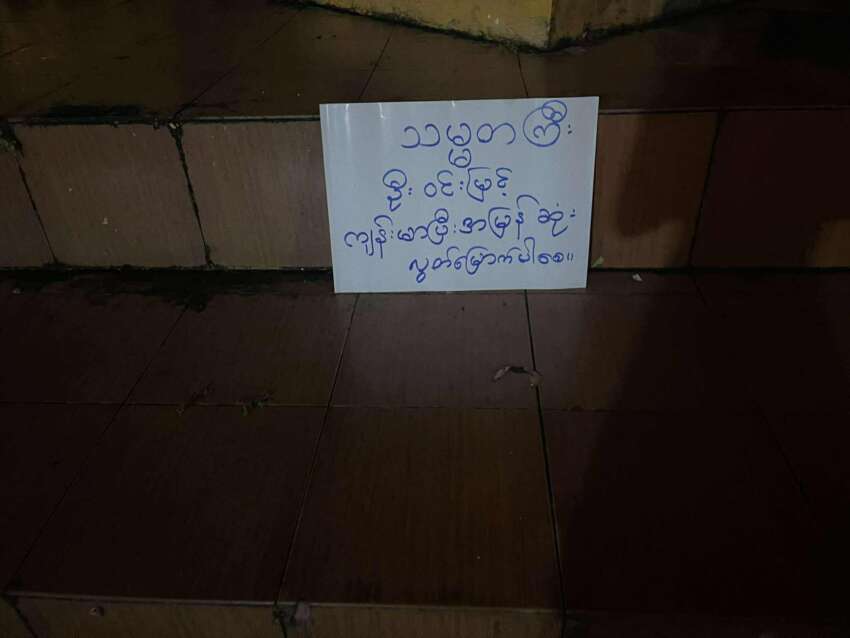 သမ္မတကြီး
ဦးဝင်းမြင့်
ကျန်းမာပြီးအမြန်ဆုံး
လွတ်မြောက်ပါစေ။